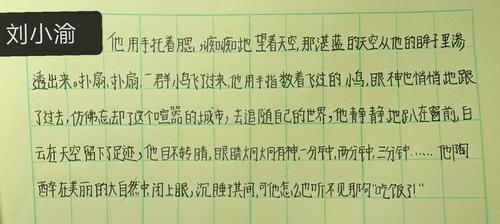 刘小渝
他用手托着腮,痴痴地望着天空,那湛蓝的天空从他的眸子里渗
透出来。扑扇、扑扇,一群小鸟飞过来,他用手指数着飞过的小鸟,眼神也悄悄地跟
了过去,仿佛忘却了这个喧嚣的城市,去追随自己的世界,他静静地趴在窗前,白
云在天空留下了足迹,他目不转睛,眼睛炯炯有神,一分钟,两分钟,三分钟……他陶
醉在美丽的大自然中,闭上眼,沉睡于其间,可他怎么也听不见那句"吃饭了!"